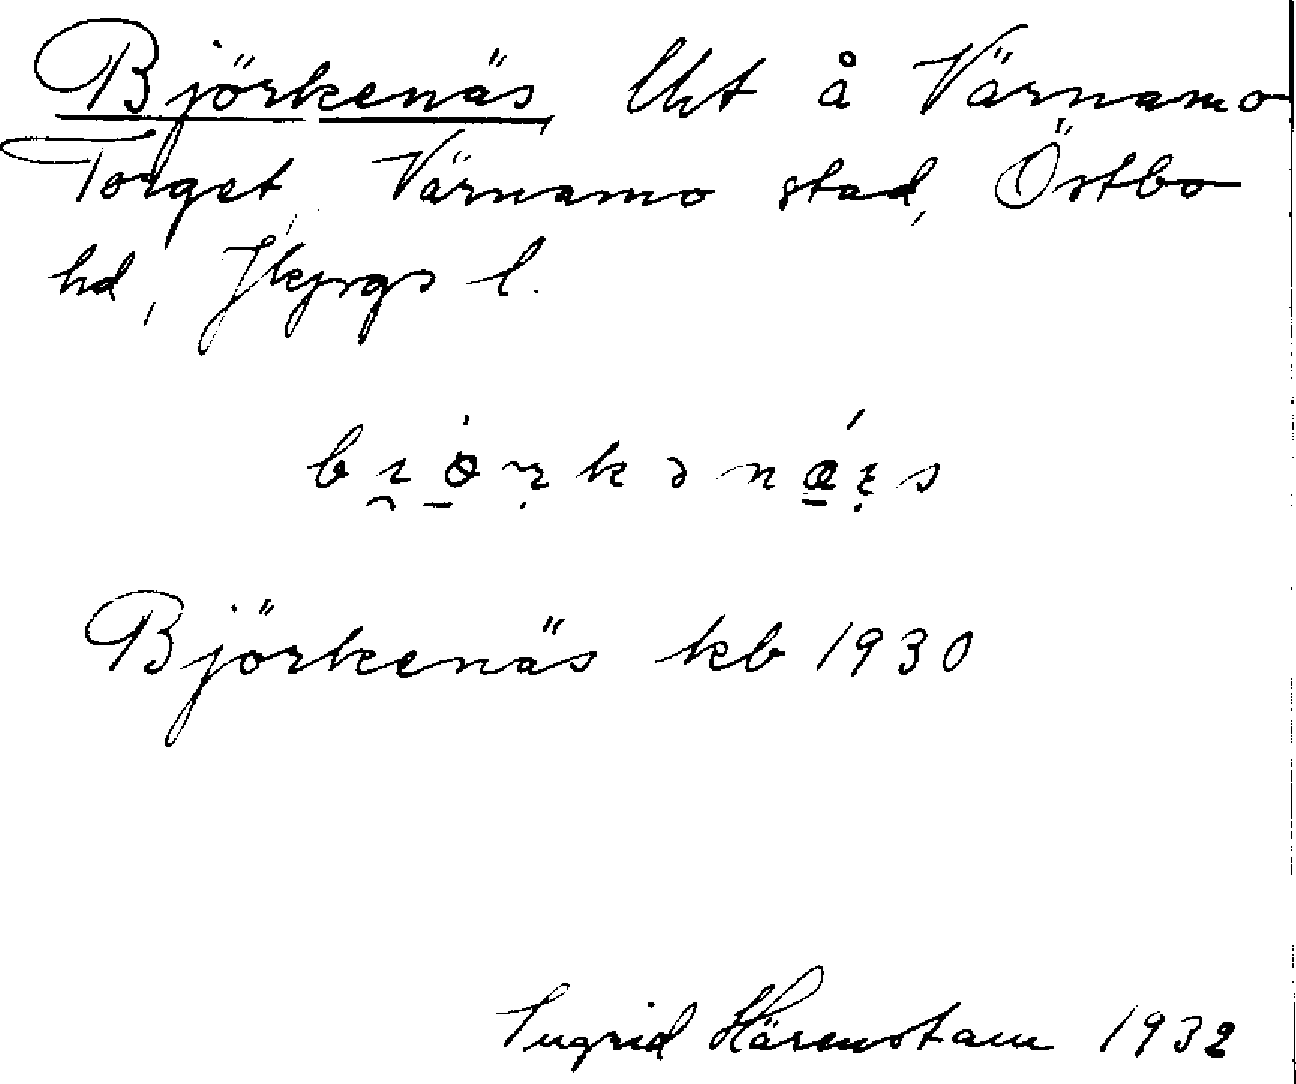 Björkenäs, lht å Värnamo
Torget, Värnamo stad, Östbo
hd, Jkpgs l.
Björkenäs kb 1930
Ingrid Härenstam 1932